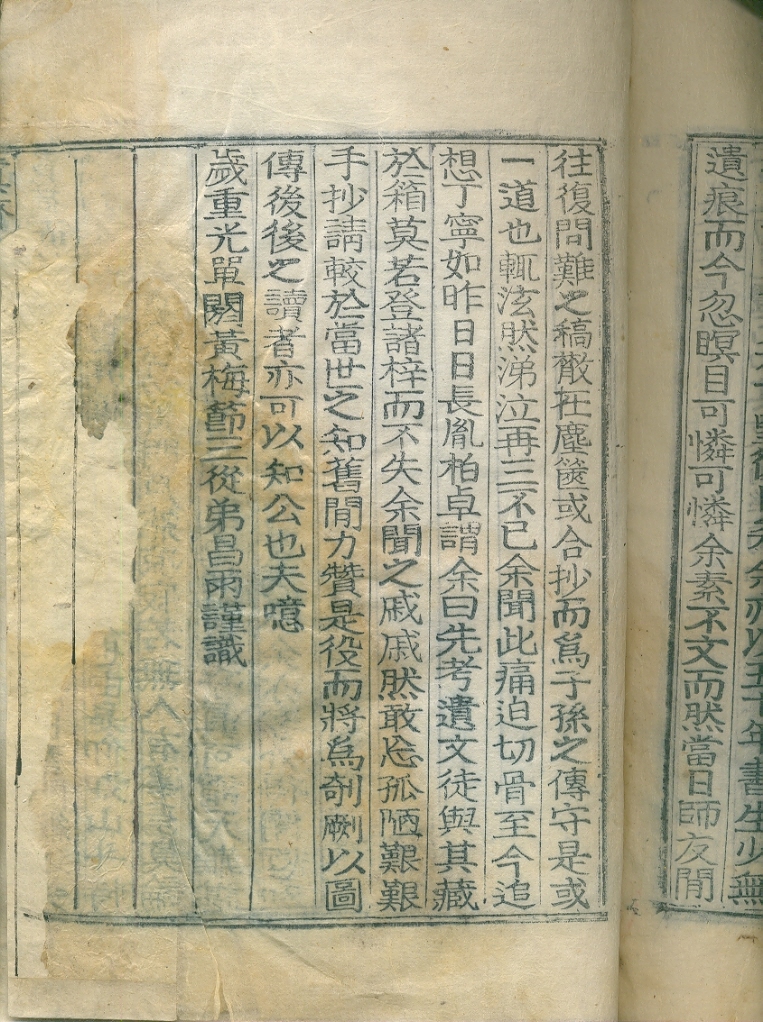 余亦以五十年書生少無
遺痕而今忽暝目可憐可憐余素不文而然當日師友間
往復問難之稿散在塵篋或合抄而爲子孫之傳守是或
一道也輒泫然涕泣再三不已余聞此痛迫切骨至今追
想丁寧如昨日日長胤柏卓謂余曰先考遺文徒與其藏
於箱莫若登諸梓而不失余聞之戚戚然敢忘孤陋艱艱
手抄請較於當世之知舊閒力贊是役而將爲剞劂以圖
傳後後之讀者亦可以知公也夫噫
歲重光單閼黃梅節三從弟昌雨謹識